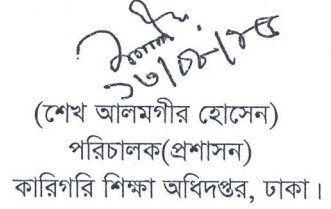 (শেখ আলমগীর হোসেন)
পরিচালক(প্রশাসন)
কারিগরি শিক্ষা অধিদপ্তর, ঢাকা।